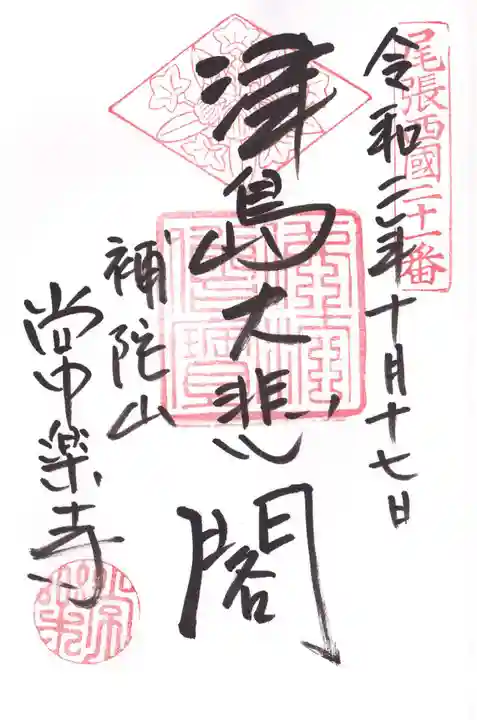 尾張西國二十一番
令和二年十月十七日
津島大悲閣
補陀山
常楽寺